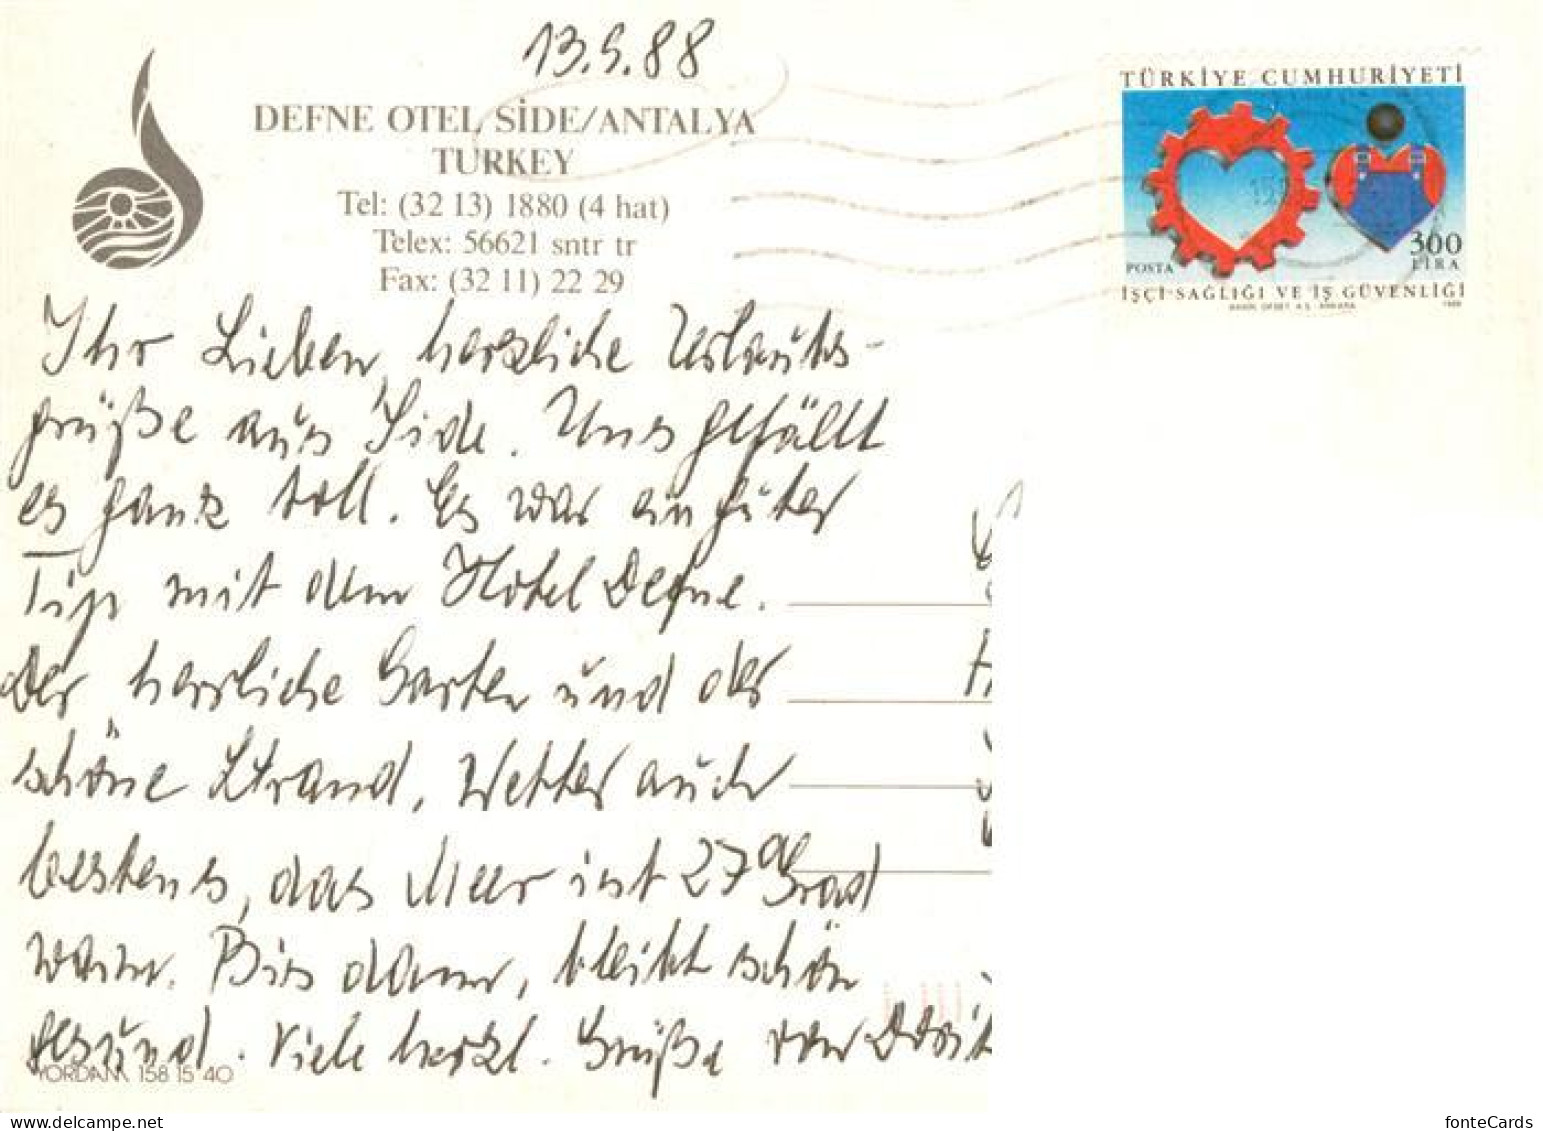 13.9.88
DEFNE OTEL SİDE/ANTALYA
TURKEY
Tel: (32 13) 1880 (4 hat)
Telex: 56621 sntr tr
Fax: (32 11) 22 29
TÜRKİYE CUMHURİYETİ
300
LİRA
POSTA
İŞÇİ SAĞLIĞI VE İŞ GÜVENLİĞİ
1988
Ihr Lieben, herzliche Urlaubs-
grüße aus Side. Uns gefällt
es ganz toll. Es war ein guter
Tip mit dem Hotel Defne.
Der herrliche Garten und der
schöne Strand, Wetter auch
bestens, das Meer ist 27° Grad
warm. Bis dann, bleibt schön
gesund. Viele herzl. Grüße von
YORDAM 158 15 40
fonteCards